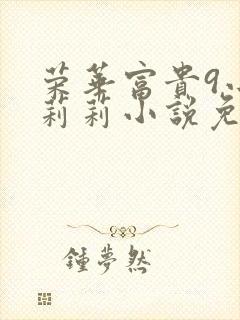 荣华富貴9
莉莉小說免
鍾夢然